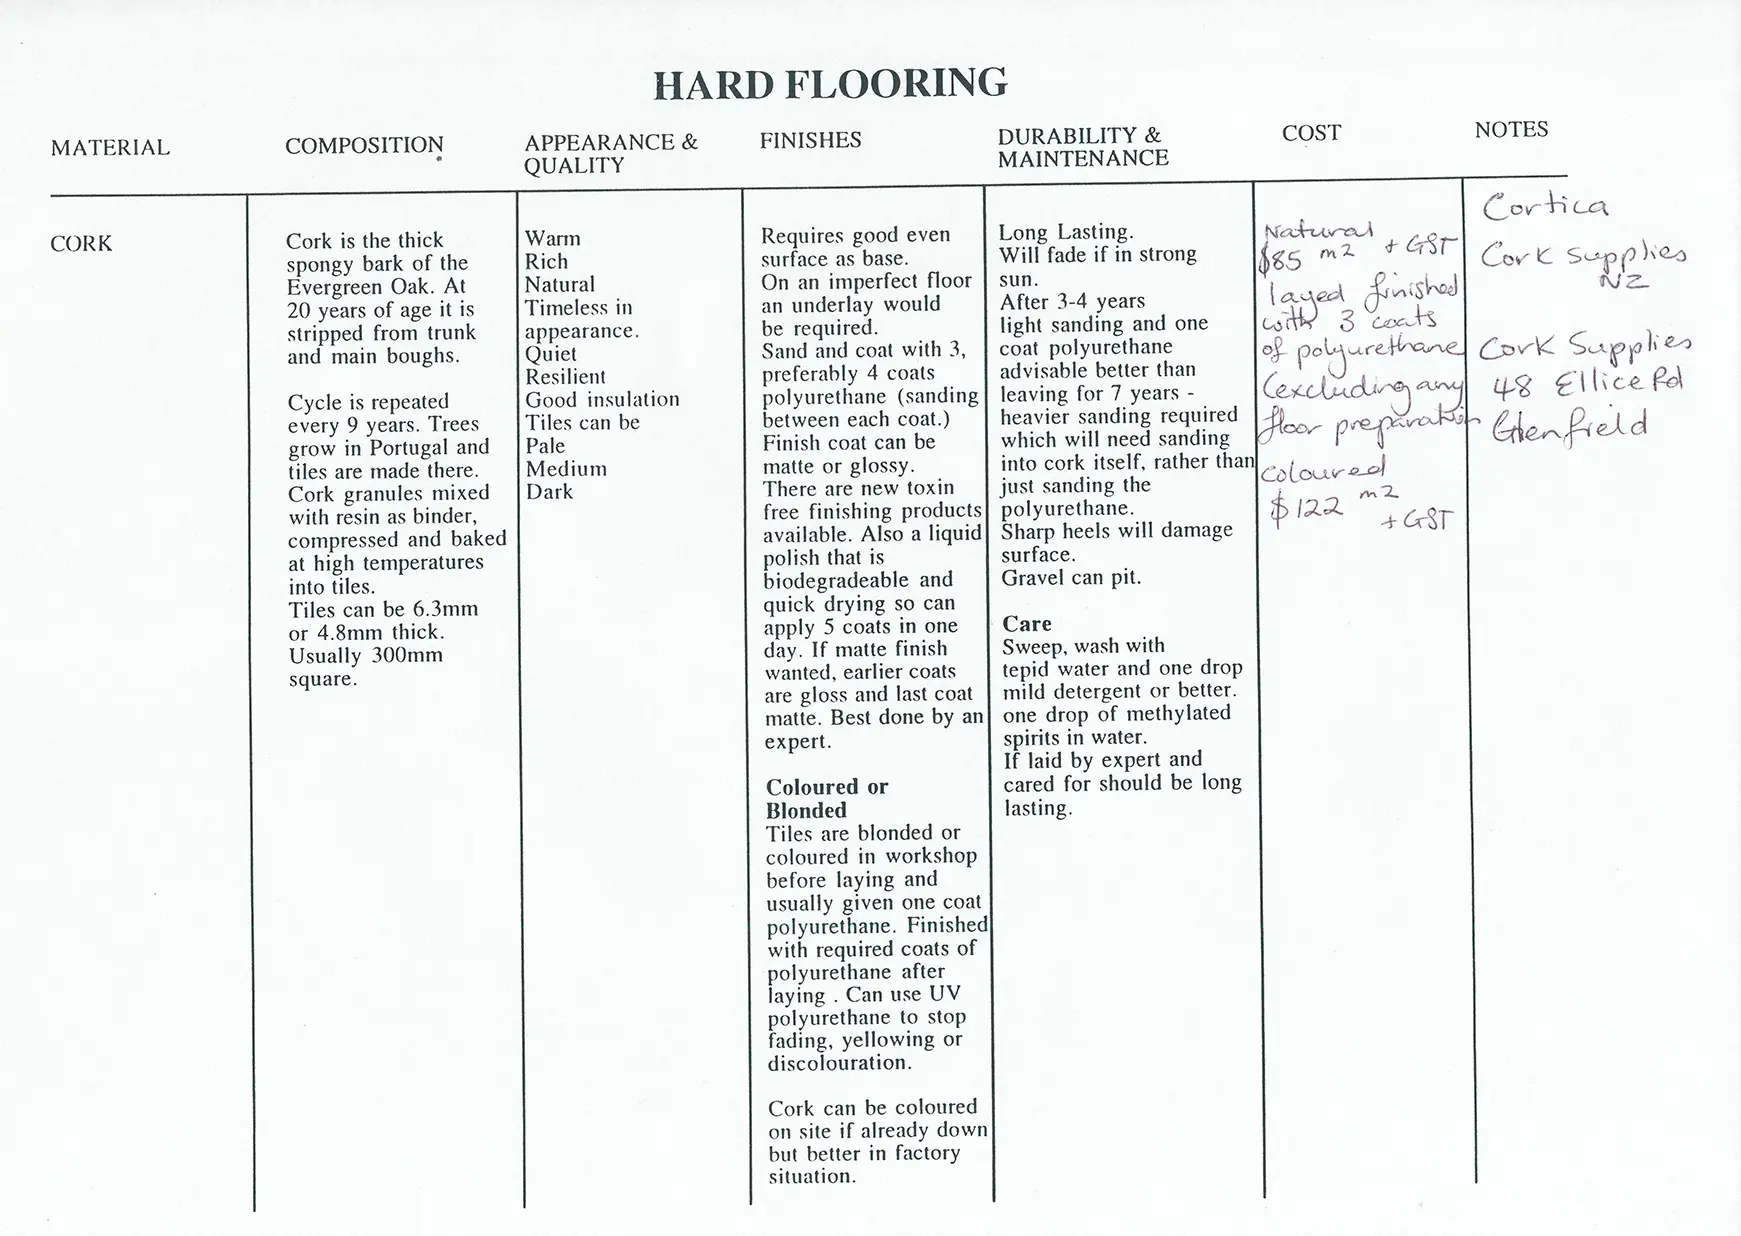 HARD FLOORING
MATERIAL
COMPOSITION
APPEARANCE &
QUALITY
FINISHES
DURABILITY &
MAINTENANCE
COST
NOTES
CORK
Cork is the thick
spongy bark of the
Evergreen Oak. At
20 years of age it is
stripped from trunk
and main boughs.
Cycle is repeated
every 9 years. Trees
grow in Portugal and
tiles are made there.
Cork granules mixed
with resin as binder,
compressed and baked
at high temperatures
into tiles.
Tiles can be 6.3mm
or 4.8mm thick.
Usually 300mm
square.
Warm
Rich
Natural
Timeless in
appearance.
Quiet
Resilient
Good insulation
Tiles can be
Pale
Medium
Dark
Requires good even
surface as base.
On an imperfect floor
an underlay would
be required.
Sand and coat with 3,
preferably 4 coats
polyurethane (sanding
between each coat.)
Finish coat can be
matte or glossy.
There are new toxin
free finishing products
available. Also a liquid
polish that is
biodegradeable and
quick drying so can
apply 5 coats in one
day. If matte finish
wanted, earlier coats
are gloss and last coat
matte. Best done by an
expert.
Coloured or
Blonded
Tiles are blonded or
coloured in workshop
before laying and
usually given one coat
polyurethane. Finished
with required coats of
polyurethane after
laying . Can use UV
polyurethane to stop
fading, yellowing or
discolouration.
Cork can be coloured
on site if already down
but better in factory
situation.
Long Lasting.
Will fade if in strong
sun.
After 3-4 years
light sanding and one
coat polyurethane
advisable better than
leaving for 7 years -
heavier sanding required
which will need sanding
into cork itself, rather than
just sanding the
polyurethane.
Sharp heels will damage
surface.
Gravel can pit.
Care
Sweep, wash with
tepid water and one drop
mild detergent or better.
one drop of methylated
spirits in water.
If laid by expert and
cared for should be long
lasting.
Natural
$85 m2 + GST
layed finished
with 3 coats
of polyurethane
(excluding any
floor preparation
Coloured
$122 m2
+ GST
Cortica
Cork Supplies
NZ
Cork Supplies
48 Ellice Rd
Glenfield